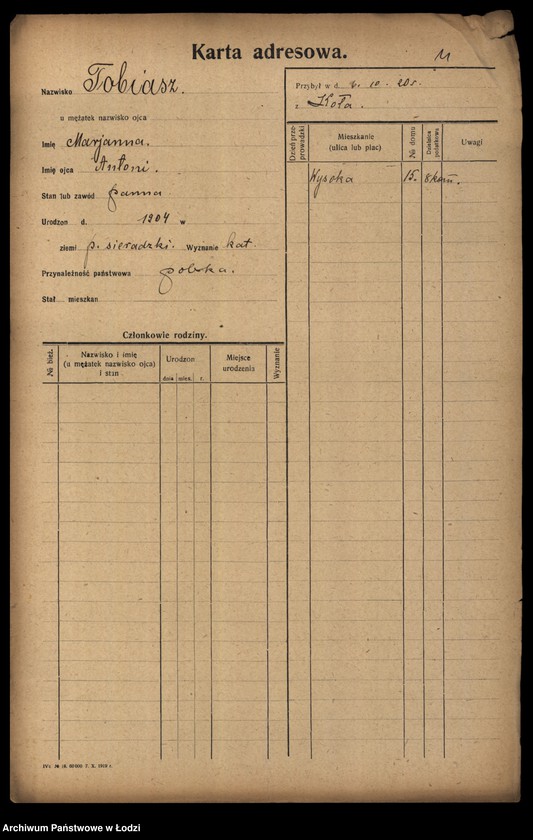 Karta adresowa.
Nazwisko Tobiasz.
u mężatek nazwisko ojca
Imię Marjanna.
Imię ojca Antoni.
Stan lub zawód panna
Urodzon d. 1904 w
ziemi p. sieradzki. Wyznanie kat.
Przynależność państwowa polska.
Stał mieszkan
Przybył w d. 6. 10. 20 r.
z Koła.
Dzień przeprowadzki
Mieszkanie
(ulica lub plac)
№ domu
Dzielnica podatkowa
Uwagi
Wysoka 15. 8 kom.
Członkowie rodziny.
№ bież.
Nazwisko i imię
(u mężatek nazwisko ojca)
i stan
Urodzon
dnia mies. r.
Miejsce
urodzenia
Wyznanie
7. X. 1919 r.
Archiwum Państwowe w Łodzi